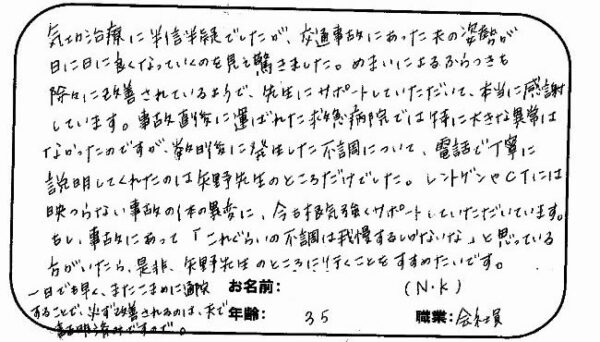 気功治療に半信半疑でしたが、交通事故にあった夫の姿勢が
日に日に良くなっていくのを見て驚きました。めまいによるふらつきも
除々に改善されているようで、先生にサポートしていただいて、本当に感謝
しています。事故直後に運ばれた救急病院では特に大きな異常は
なかったのですが、数日後に発生した不調について、電話で丁寧に
説明してくれたのは矢野先生のところだけでした。レントゲンやCTには
映つらない事故の体の異変に、今も根気強くサポートしていただいています。
もし、事故にあって「これぐらいの不調は我慢するしかないな」と思っている
方がいたら、是非、矢野先生のところに行くことをすすめたいです。
一日でも早く、またこまめに通院 お名前: (N.K)
することで、必ず改善されるのは、夫で 年齢: 35 職業: 会社員
証明済みですので。